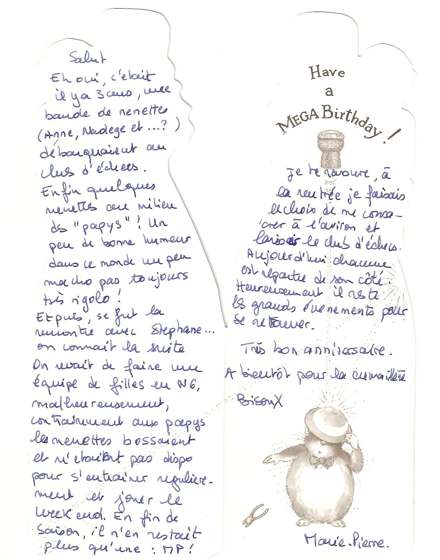 Salut
Eh oui, c'était
il y a 3 ans, une
bande de nenettes
(Anne, Nadege et ...?)
débarquaient au
club d'échecs.
Enfin quelques
nenettes au milieu
des "papys" ! Un
peu de bonne humeur
dans ce monde un peu
macho pas toujours
très rigolo !
Et puis, ce fut la
rencontre avec Stéphane...
on connait la suite
On rêvait de faire une
équipe de filles en N6,
malheureusement,
contrairement aux papys
les nenettes bossaient
et n'étaient pas dispo
pour s'entrainer régulière-
ment et jouer le
week end. En fin de
saison, il n'en restait
plus qu'une : MP!
Have
a
MEGA Birthday!
je te rassure, à
la rentrée je faisais
le choix de me consa-
crer à l'aviron et
laisser le club d'échecs.
Aujourd'hui chacune
est repartie de son côté.
Heureusement il reste
les grands évènements pour
se retrouver.
Très bon anniversaire.
A bientôt pour la crémaillère
BisouX
Marie-Pierre.